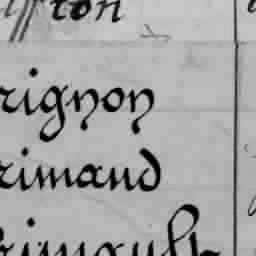 ffton
rignon
rimaud
rimault